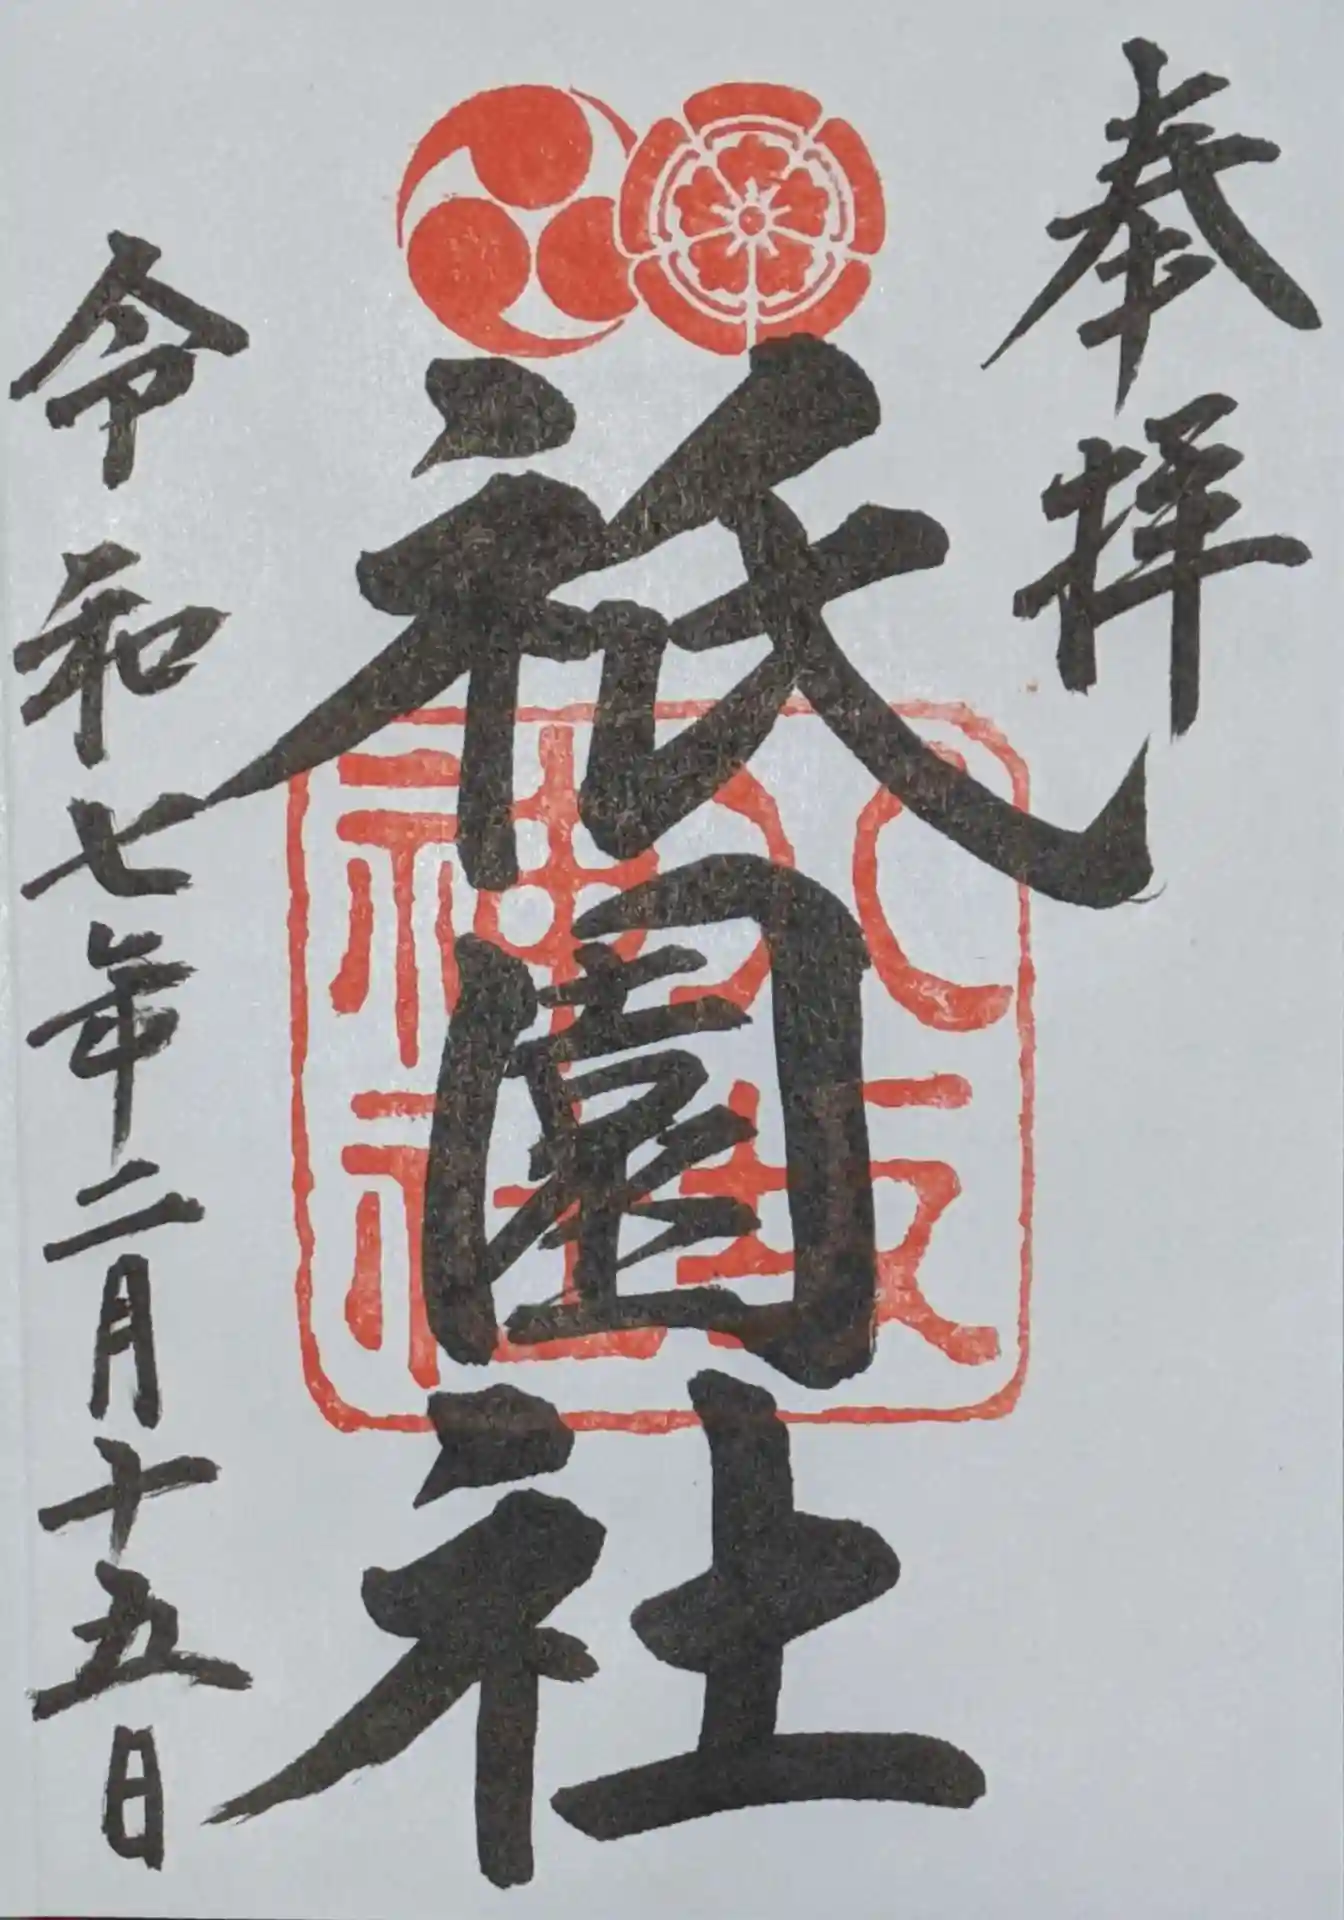 奉拝
祇園社
八坂神社
令和七年二月十五日